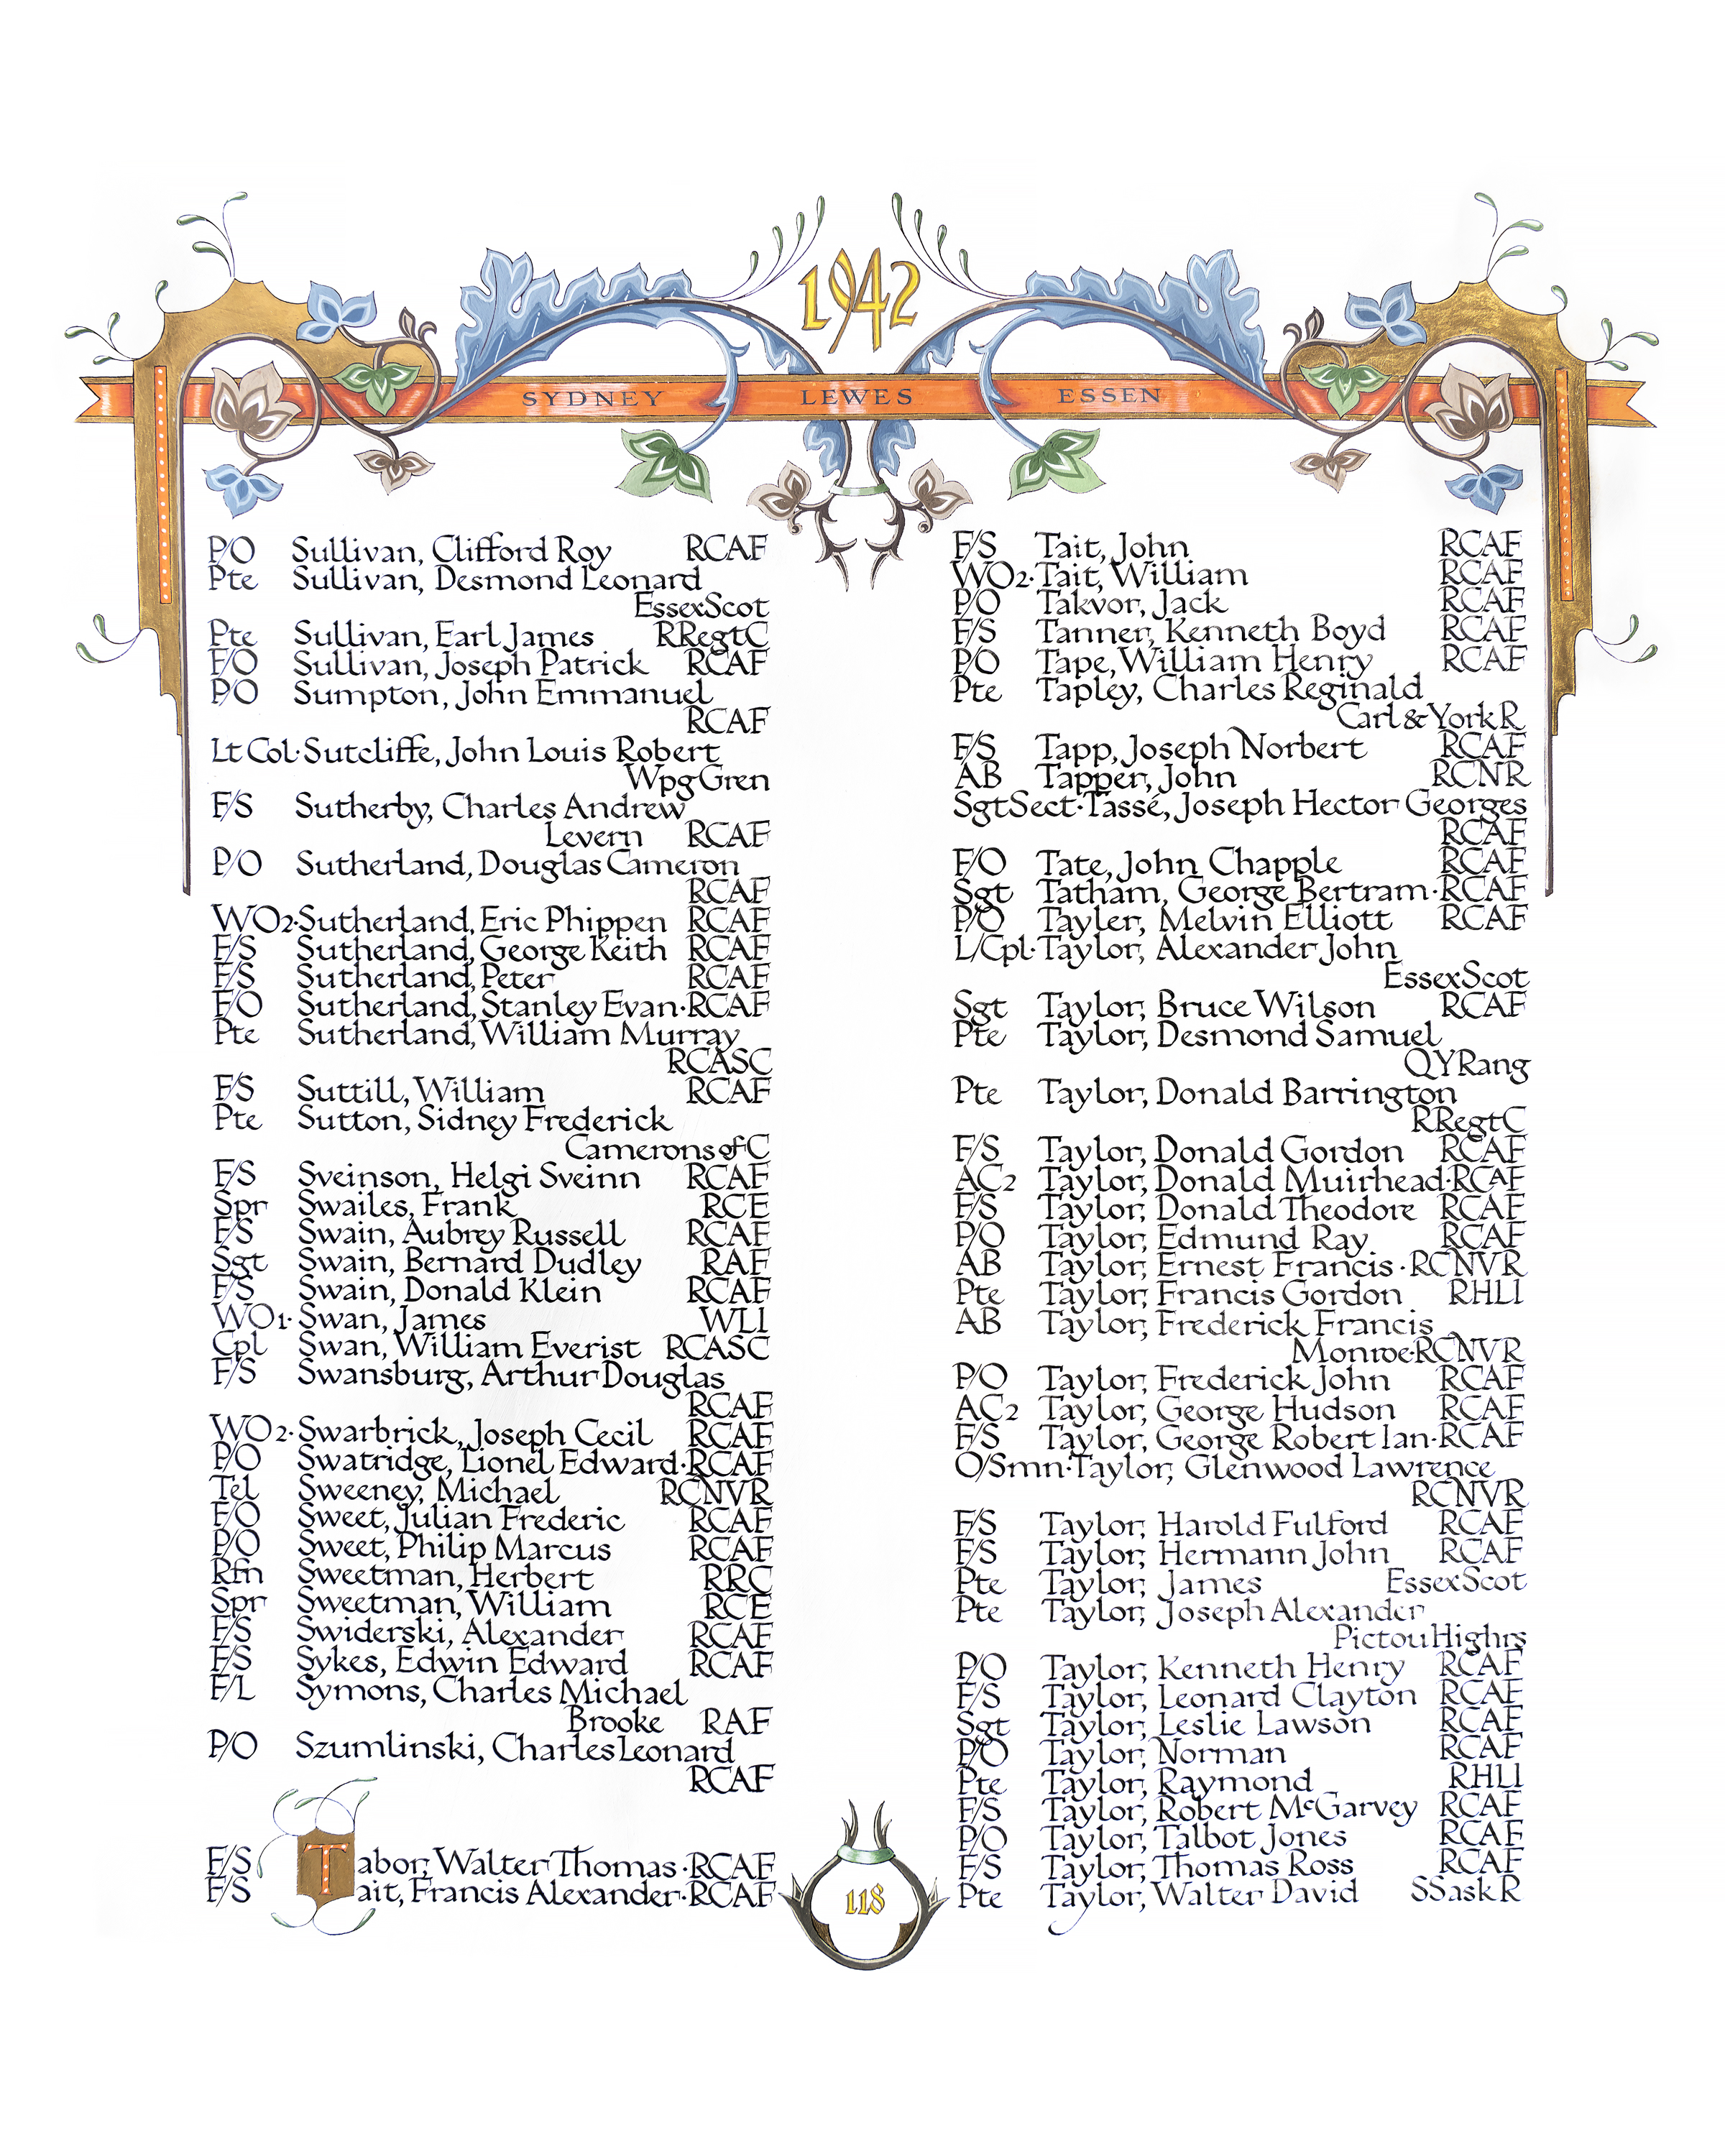 1942
SYDNEY LEWES ESSEN
P/O Sullivan, Clifford Roy RCAF
Pte Sullivan, Desmond Leonard
EssexScot
Pte Sullivan, Earl James RRegtC
F/O Sullivan, Joseph Patrick RCAF
P/O Sumpton, John Emmanuel
RCAF
Lt Col·Sutcliffe, John Louis Robert
WpgGren
F/S Sutherby, Charles Andrew
Levern RCAF
P/O Sutherland, Douglas Cameron
RCAF
WO2·Sutherland, Eric Phippen RCAF
F/S Sutherland, George Keith RCAF
F/S Sutherland, Peter RCAF
F/O Sutherland, Stanley Evan·RCAF
Pte Sutherland, William Murray
RCASC
F/S Suttill, William RCAF
Pte Sutton, Sidney Frederick
Camerons of C
F/S Sveinson, Helgi Sveinn RCAF
Spr Swailes, Frank RCE
F/S Swain, Aubrey Russell RCAF
Sgt Swain, Bernard Dudley RAF
F/S Swain, Donald Klein RCAF
WO1·Swan, James WLI
Cpl Swan, William Everist RCASC
F/S Swansburg, Arthur Douglas
RCAF
WO2·Swarbrick, Joseph Cecil RCAF
P/O Swatridge, Lionel Edward·RCAF
Tel Sweeney, Michael RCNVR
F/O Sweet, Julian Frederic RCAF
P/O Sweet, Philip Marcus RCAF
Rfn Sweetman, Herbert RRC
Spr Sweetman, William RCE
F/S Swiderski, Alexander RCAF
F/S Sykes, Edwin Edward RCAF
F/L Symons, Charles Michael
Brooke RAF
P/O Szumlinski, Charles Leonard
RCAF
F/S Tabor, Walter Thomas·RCAF
F/S Tait, Francis Alexander·RCAF
F/S Tait, John RCAF
WO2·Tait, William RCAF
P/O Takvor, Jack RCAF
F/S Tanner, Kenneth Boyd RCAF
P/O Tape, William Henry RCAF
Pte Tapley, Charles Reginald
Carl & York R
F/S Tapp, Joseph Norbert RCAF
AB Tapper, John RCNR
SgtSect·Tassé, Joseph Hector Georges
RCAF
F/O Tate, John Chapple RCAF
Sgt Tatham, George Bertram·RCAF
P/O Tayler, Melvin Elliott RCAF
L/Cpl·Taylor, Alexander John
EssexScot
Sgt Taylor, Bruce Wilson RCAF
Pte Taylor, Desmond Samuel
QYRang
Pte Taylor, Donald Barrington
RRegtC
F/S Taylor, Donald Gordon RCAF
AC2 Taylor, Donald Muirhead·RCAF
F/S Taylor, Donald Theodore RCAF
P/O Taylor, Edmund Ray RCAF
AB Taylor, Ernest Francis·RCNVR
Pte Taylor, Francis Gordon RHLI
AB Taylor, Frederick Francis
Monroe·RCNVR
P/O Taylor, Frederick John RCAF
AC2 Taylor, George Hudson RCAF
F/S Taylor, George Robert Ian·RCAF
O/Smn·Taylor, Glenwood Lawrence
RCNVR
F/S Taylor, Harold Fulford RCAF
F/S Taylor, Hermann John RCAF
Pte Taylor, James EssexScot
Pte Taylor, Joseph Alexander
PictouHighrs
P/O Taylor, Kenneth Henry RCAF
F/S Taylor, Leonard Clayton RCAF
Sgt Taylor, Leslie Lawson RCAF
P/O Taylor, Norman RCAF
Pte Taylor, Raymond RHLI
F/S Taylor, Robert McGarvey RCAF
P/O Taylor, Talbot Jones RCAF
F/S Taylor, Thomas Ross RCAF
Pte Taylor, Walter David SSaskR
118